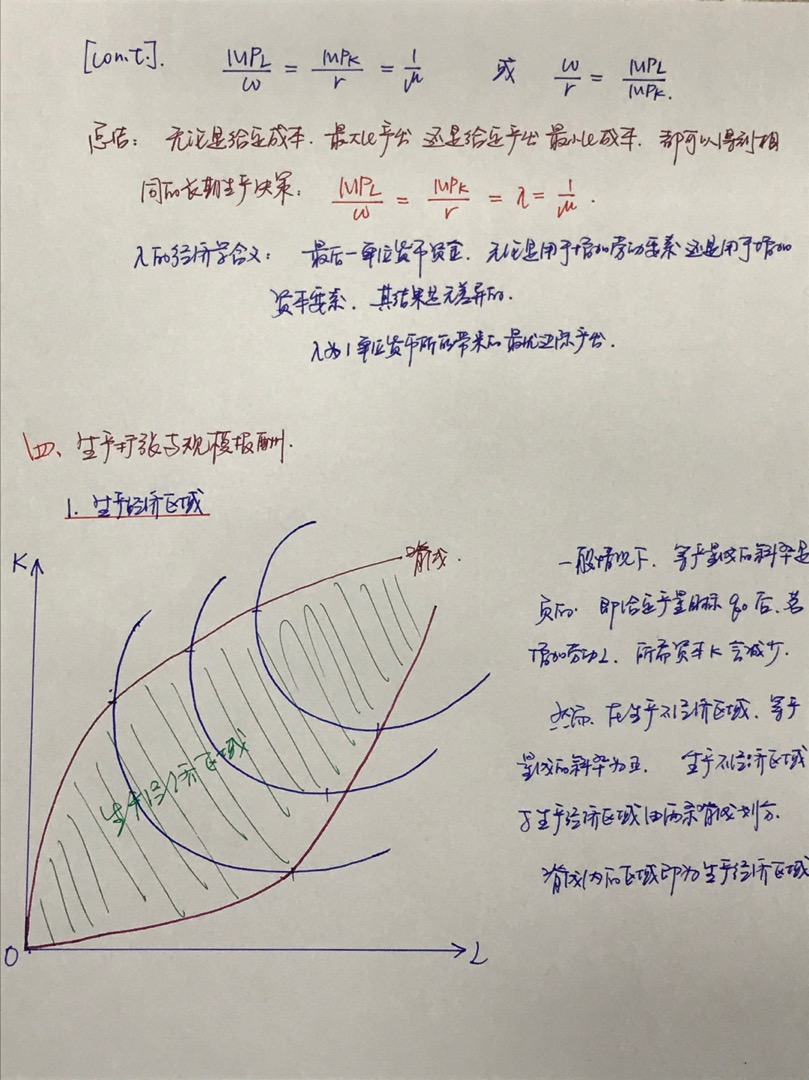 [con.t.]. MPL/w = MPK/r = 1/μ 或 w/r = MPL/MPK.
总结: 无论是给定成本. 最大化产出 还是给定产出 最小化成本. 都可以得到相
同的长期生产决策: MPL/w = MPK/r = λ = 1/μ.
λ的经济学含义: 最后一单位货币资金. 无论是用于增加劳动要素 还是用于增加
资本要素. 其结果是无差异的.
λ为1单位货币所能带来的最优边际产出.
四、生产扩张与规模报酬.
1. 生产经济区域
K
脊线.
生产经济区域
O
L
一般情况下. 等产量线的斜率是
负的. 即给定产量目标 q0 后. 若
增加劳动L. 所需资本K会减少.
然而. 在生产不经济区域. 等产
量线的斜率为正. 生产不经济区域
与生产经济区域由两条脊线划分.
脊线内的区域即为生产经济区域